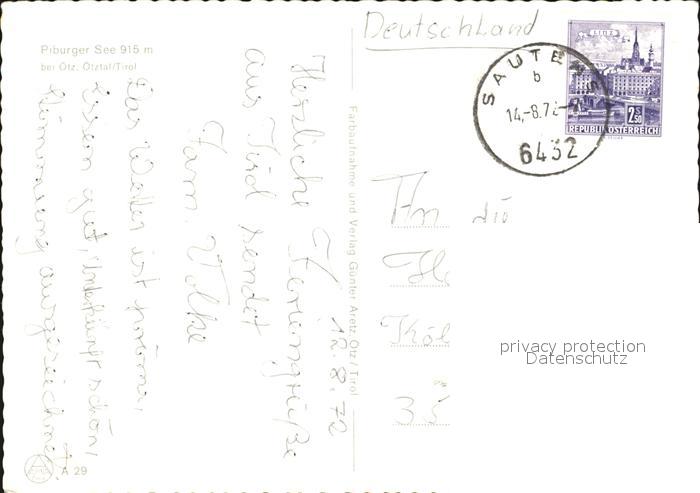 Piburger See 915 m
bei Ötz, Ötztal/Tirol
Deutschland
LINZ
2S50
REPUBLIK ÖSTERREICH
SAUTENS
b
14.-8.72-
6432
12. 8. 72
Herzliche Feriengrüße
aus Tirol sendet
Fam. Wolke
Das Wetter ist prima,
Essen gut, Unterkunft schön,
Stimmung ausgezeichnet.
Farbaufnahme und Verlag Günter Aretz Ötz/Tirol
An die
35
privacy protection
Datenschutz
A 29